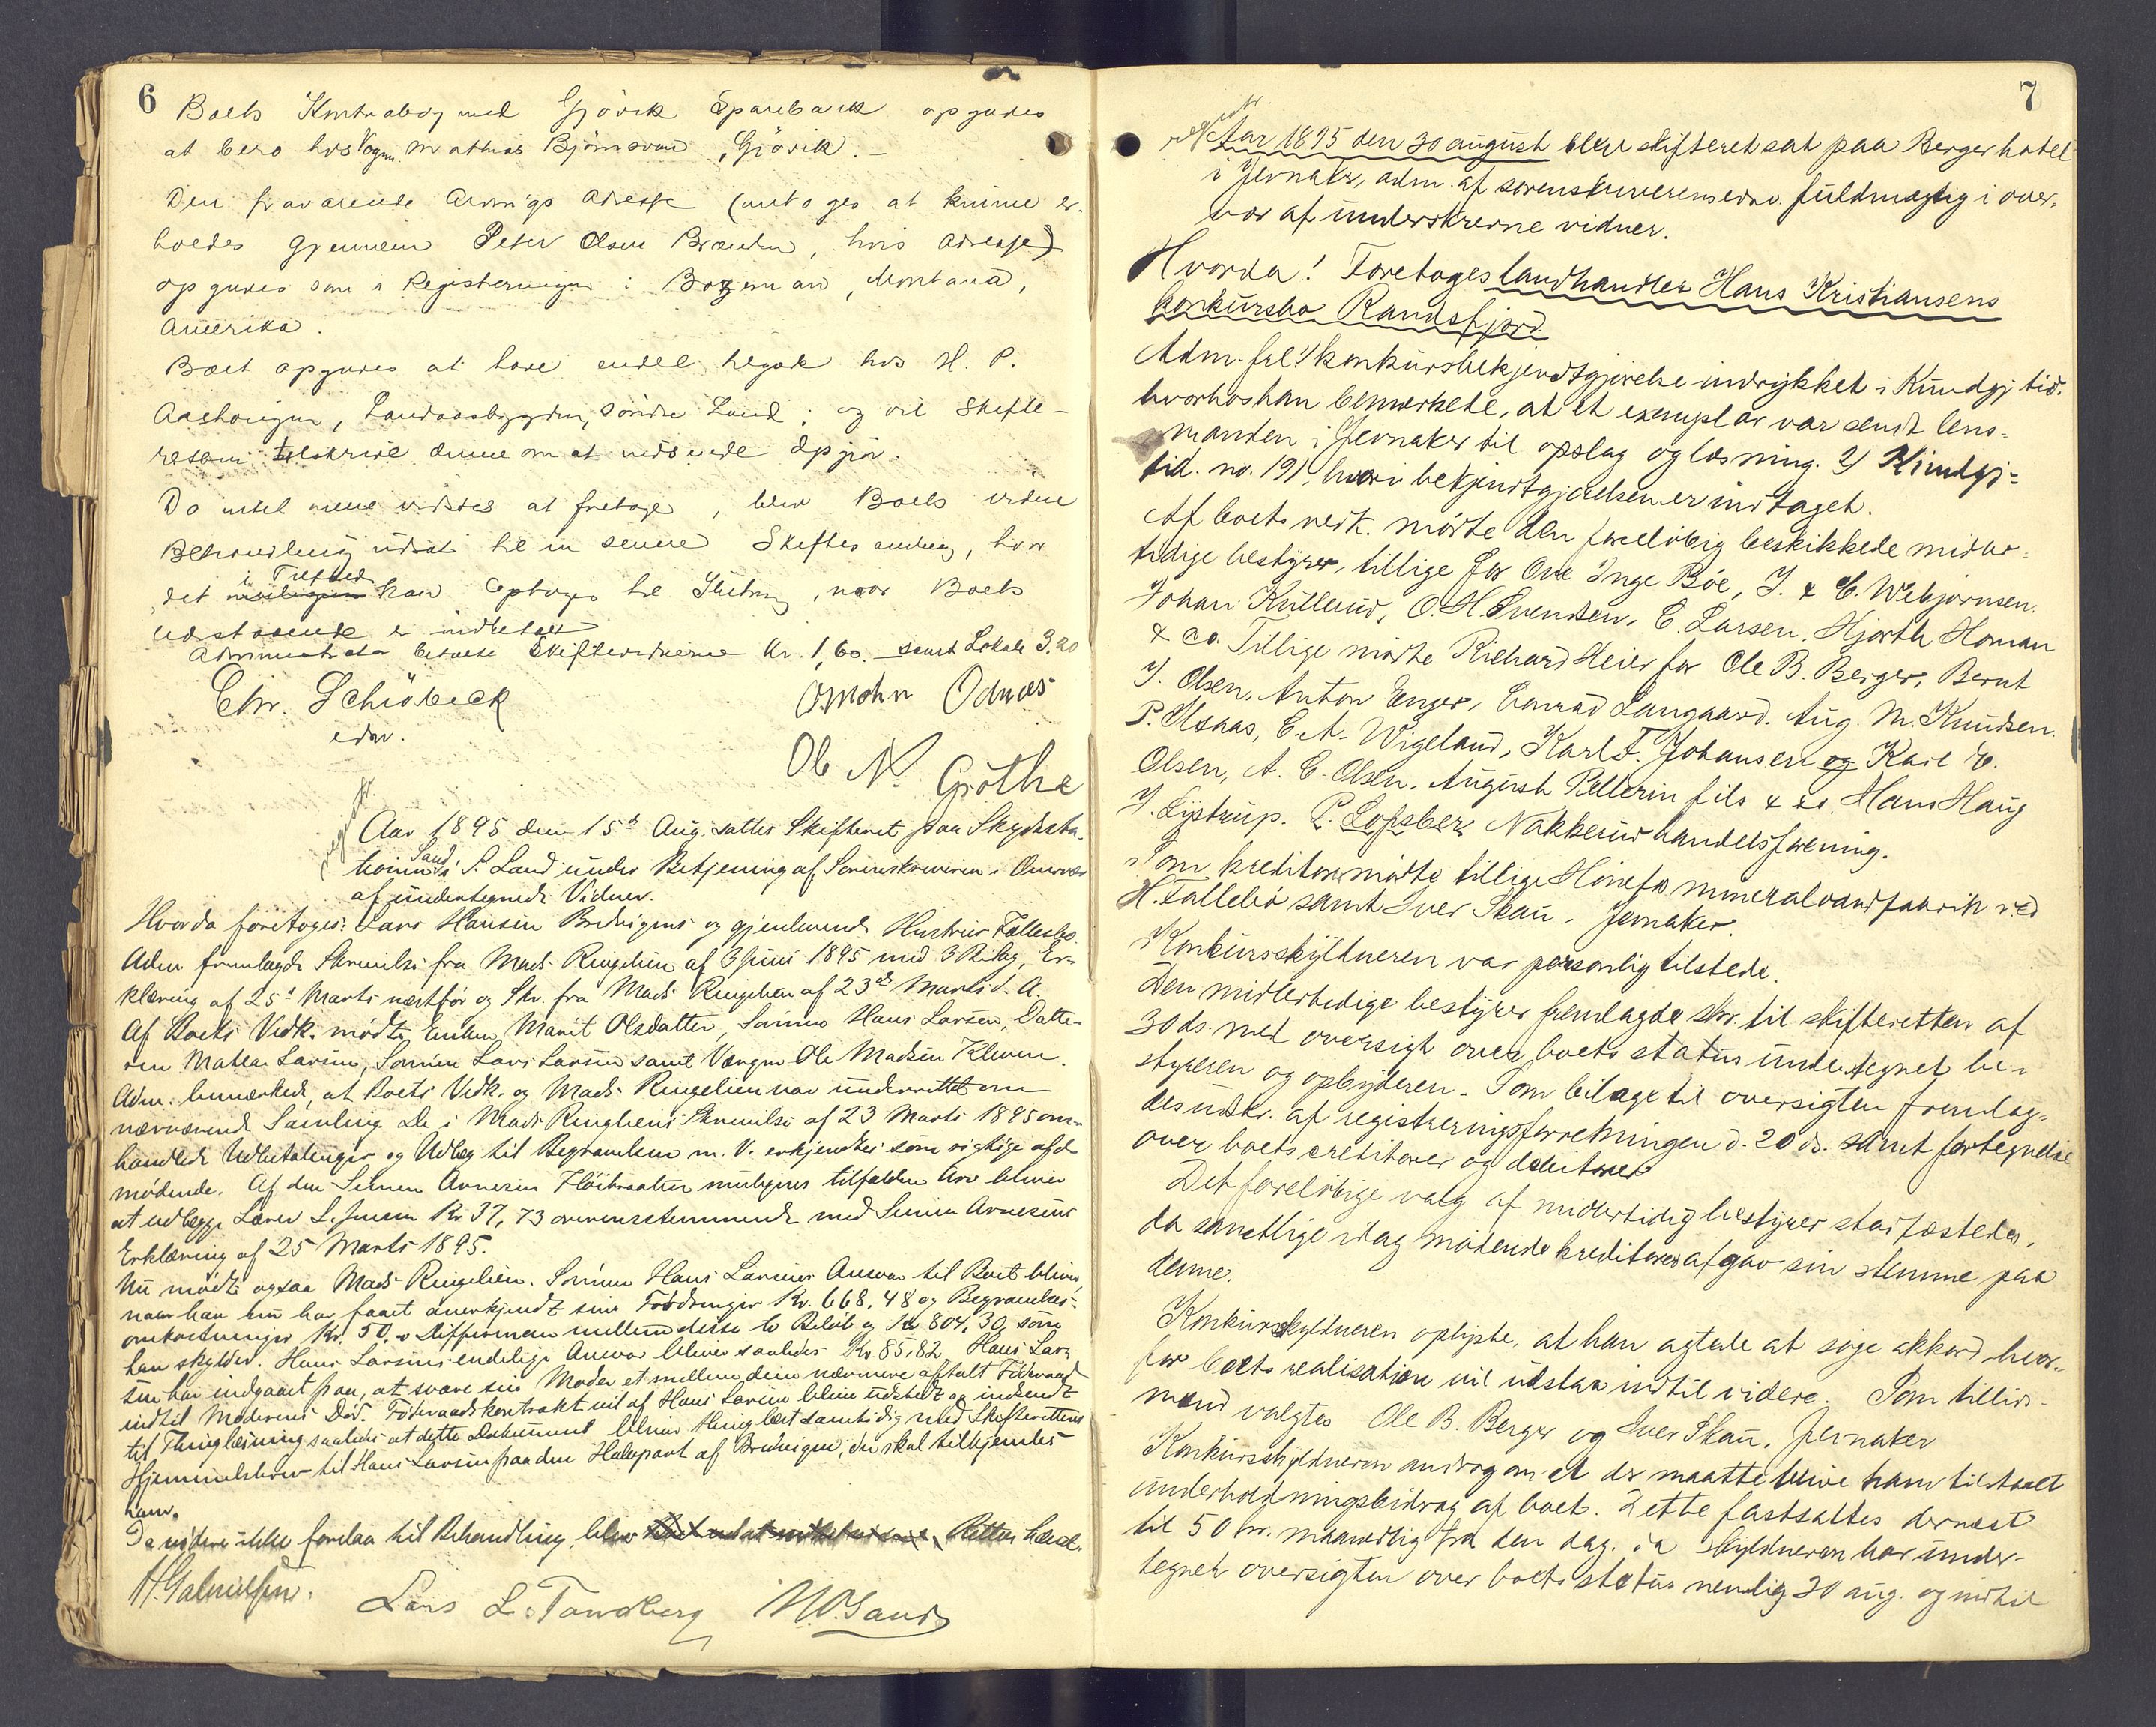 6
Boets Kontrabog med Gjövik Sparebank opgives
at bero hos Vægm. Mathias Björnsrud, Gjövik. –
Den fraværende Arvings Adresse (antoges at kunne er-
holdes gjennem Peter Olsen Brænden, hvis Adresse)
opgives som i Registreringen: Bozeman, Montana,
Amerika.
Boet opgives at have endel tilgode hos H. P.
Aashaugen, Landaasbygden, Söndre Land; og vil Skifte-
retten tilskrive denne om at indsende Opgjör.
Da intet mere vidstes at foretage, blev Boets videre
Behandling udsat til en senere Skiftesamling, hvor
i Tilfælde
det kan optages til Slutning, naar Boets
Udestaaende er indbetalt
Administrator betalte Skiftevidnerne Kr. 1,60. – samt Lokale 3.20
Chr. Schiöbeck
edsv.
O. Mohn Odnæs
Ole N. Gröthe
Aar 1895 den 15de Aug. sattes Skifteret paa Skydssta-
tionen Sand i S. Land under Betjening af Sorenskriveren i Overvær
af undertegnede Vidner.
Hvorda foretoges: Lars Hansen Bredvigens og gjenlevende Hustrus Fællesbo.
Adm. fremlagde Skrivelse fra Mads Ringelien af 3 Juni 1895 med 3 Bilag, Er-
klæring af 25de Marts næstför og Skr. fra Mads Ringelien af 23de Marts d. A.
Af Boets Vedk. mödte Enken Marit Olsdatter, Sönnen Hans Larsen, Datte-
ren Mathea Larsen, Sönnen Lars Larsen samt Værgen Ole Madsen Kleven.
Adm. bemærkede, at Boets Vedk. og Mads Ringelien var underrettet om
nærværende Samling. De i Mads Ringeliens Skrivelse af 23 Marts 1895 om-
handlede Udbetalinger og Udlæg til Begravelsen m. V. erkjendtes som rigtige af de
mödende. Af den Simen Arnesen Höibraaten muligens tilfaldne Arv bliver
at udlægge Lærer L. Jensen Kr 37,73 overensstemmende med Simen Arnesens
Erklæring af 25 Marts 1895.
Nu mödte ogsaa Mads Ringelien. Sönnen Hans Larsens Ansvar til Boet bliver,
naar han nu har faaet anerkjendt sine Fordringer Kr. 668,48 og Begravelses-
omkostninger Kr. 50, – Differencen mellem disse to Belöb og Kr 804,30 som
han skylder. Hans Larsens endelige Ansvar bliver saaledes Kr 85,82. Hans Lar-
sen har indgaaet paa, at svare sin Moder et mellem dem nærmere aftalt Föderaad
indtil Moderens Död. Föderaadskontrakt vil af Hans Larsen blive udstedt og indsendt
til Thinglæsning saaledes at dette Dokument bliver thinglæst samtidig med Skifterettens
Hjemmelsbrev til Hans Larsen paa den Halvpart af Bredvigen, der skal tilkjendes
ham.
Da videre ikke forelaa til Behandling, blev Retten hævet.
H. Gabrielsen.
Lars L. Tandberg
N. O. Sand
7
Aar 1895 den 30 august blev skifteret sat paa Berger hotel
i Jevnaker, adm. af sorenskriverens edsv. fuldmægtig i over-
vær af underskrevne vidner.
Hvorda! Foretoges landhandler Hans Kristiansens
konkursbo Randsfjord.
Adm. frl. 1) konkursbekjendtgjørelse indrykket i Kundgj. tid.
hvorhos han bemærkede, at et exemplar var sendt lens-
manden i Jevnaker til opslag og læsning. 2) Kundgj-
tid. no. 191, hvori bekjendtgjørelsen er indtaget.
Af boets vedk. mödte den foreløbig beskikkede midler-
tidige bestyrer, tillige for Ove Inge Böe, J. & C. Webjørnsen.
Johan Kullerud, O. H. Svendsen, C. Larsen, Hjorth Homan
& Co. Tillige mödte Richard Heier for Ole B. Berger, Bernt
J. Olsen, Anton Enger, Conrad Langaard. Aug. M. Knudsen.
P. Ulsaas, C. A. Wigeland, Karl F. Johansen og Karl E.
Olsen, A. C. Olsen, August Pellerin fils & co. Hans Haug
J. Lystrup. P. Lofsberg Nakkerud handelsforening.
Som kreditorer mödte tillige Hönefos mineralvandfabrik ved
H. Fallebö samt Iver Skau, Jevnaker.
Konkursskyldneren var personlig tilstede.
Den midlertidige bestyrer fremlagde skr. til skifteretten af
30 ds. med oversigt over boets status undertegnet be-
styreren og opbyderen. Som bilage til oversigten fremlag-
des udskr. af registreringsforretningen d. 20 ds. samt fortegnelse
over boets creditorer og debitorer
Det foreløbige valg af midlertidig bestyrer stadfæstedes,
da samtlige idag mödende kreditorer afgav sin stemme paa
denne.
Konkursskyldneren oplyste, at han agtede at søge akkord, hvor-
for boets realisation vil udstaa indtil videre. Som tillids-
mænd valgtes Ole B. Berger og Iver Skau, Jevnaker
Konkursskyldneren androg om at der maatte blive ham tilstaaet
underholdningsbidrag af boet. Dette fastsattes dernæst
til 50 kr. maanedlig fra den dag, da skyldneren har under-
tegnet oversigten over boets status nemlig 30 aug. og indtil